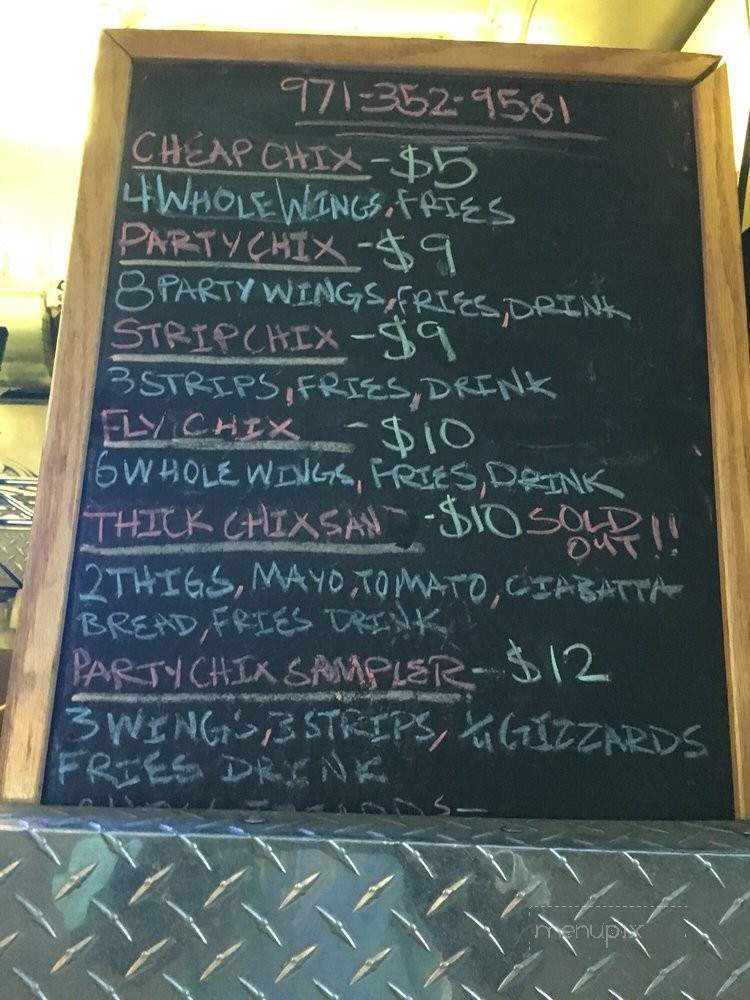 971-352-9581
CHEAP CHIX - $5
4 WHOLE WINGS, FRIES
PARTY CHIX - $9
8 PARTY WINGS, FRIES, DRINK
STRIP CHIX - $9
3 STRIPS, FRIES, DRINK
FLY CHIX - $10
6 WHOLE WINGS, FRIES, DRINK
THICK CHIX SAN - $10 SOLD OUT!!
2 THIGS, MAYO, TOMATO, CIABATTA
BREAD, FRIES DRINK
PARTY CHIX SAMPLER - $12
3 WINGS, 3 STRIPS, 1/4 GIZZARDS
FRIES DRINK
menupix